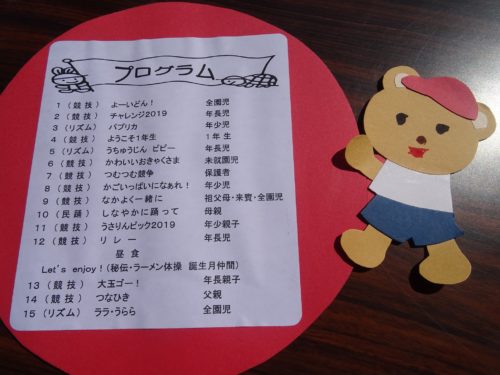 プログラム
1（競技） よーいどん！ 全園児
2（競技） チャレンジ2019 年長児
3（リズム） パプリカ 年少児
4（競技） ようこそ1年生 1年生
5（リズム） うちゅうじん ピピー 年長児
6（競技） かわいいおきゃくさま 未就園児
7（競技） つむつむ競争 保護者
8（競技） かごいっぱいになぁれ！ 年少児
9（競技） なかよく一緒に 祖父母・来賓・全園児
10（民踊） しなやかに踊って 母親
11（競技） うさりんピック2019 年少親子
12（競技） リレー 年長児
昼食
Let's enjoy！（秘伝・ラーメン体操 誕生月仲間）
13（競技） 大玉ゴー！ 年長親子
14（競技） つなひき 父親
15（リズム） ララ・うらら 全園児